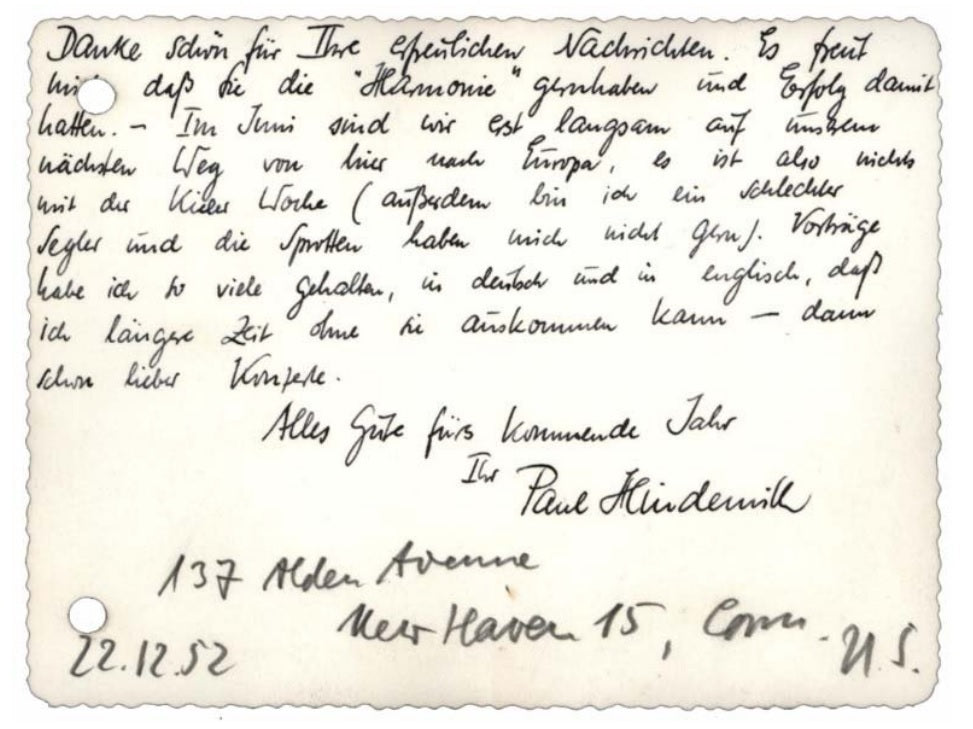 Danke schön für Ihre erfreulichen Nachrichten. Es freut
mich daß Sie die "Harmonie" gernhaben und Erfolg damit
hatten. – Im Juni sind wir erst langsam auf unserem
nächsten Weg von hier nach Europa, es ist also nichts
mit der Kieler Woche (außerdem bin ich ein schlechter
Segler und die Sprotten haben mich nicht gern). Vorträge
habe ich so viele gehalten, in deutsch und in englisch, daß
ich längere Zeit ohne sie auskommen kann – dann
schon lieber Konzerte.
Alles Gute fürs kommende Jahr
Ihr
Paul Hindemith
137 Alden Avenue
New Haven 15, Conn. U.S.
22.12.52